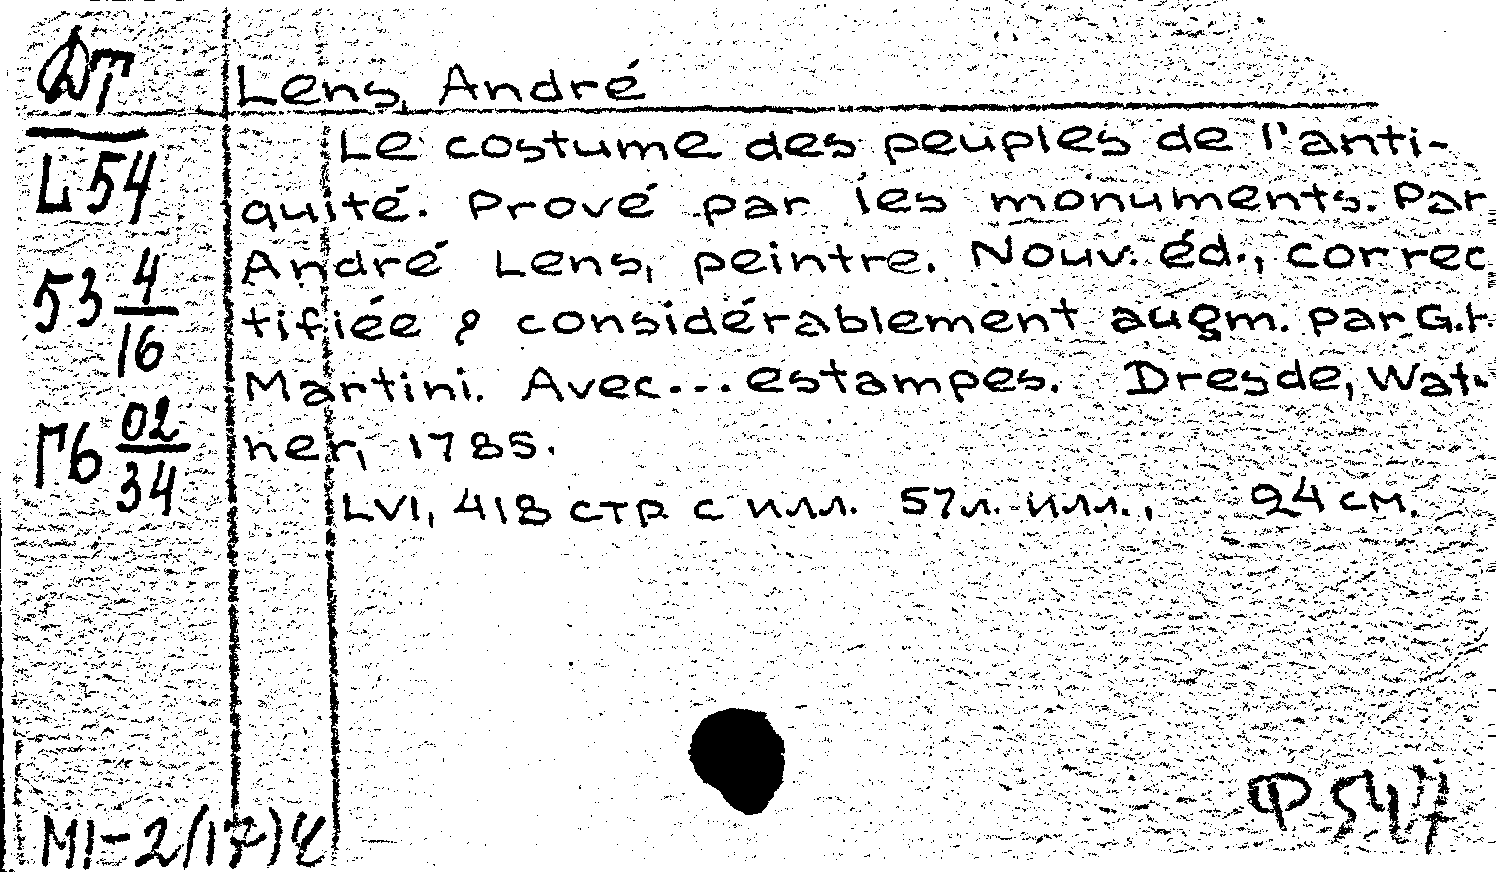 ДТ
L 54
53 4/16
Гб 02/34
Lens, André
Le costume des peuples de l'anti-
quité. Prové par les monuments. Par
André Lens, peintre. Nouv. éd., correc
tifiée & considérablement augm. par G.H.
Martini. Avec... estampes. Dresde, Wal-
ner, 1785.
LVI, 418 стр. с илл. 57л. илл., 24 см.
MI-2/17)
Ф 547